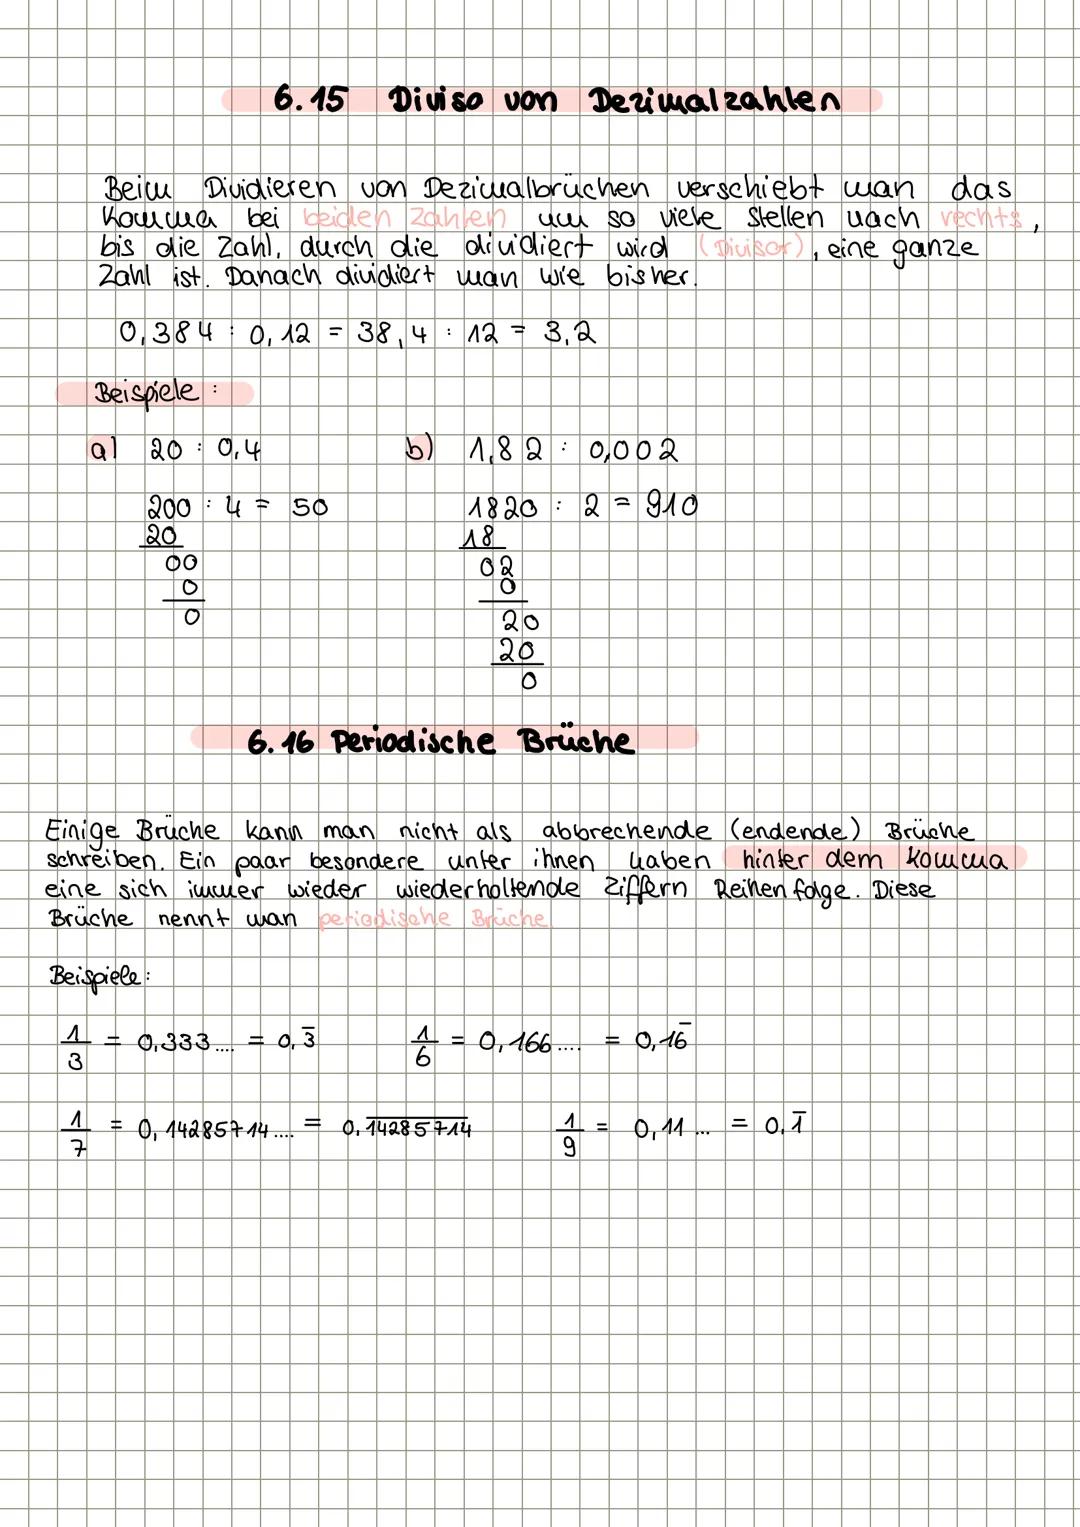 6.15 Diviso von Dezimalzahlen
Beim Dividieren von Dezimalbrüchen verschiebt man das
Komma bei beiden Zahlen um so viele Stellen nach rechts,
bis die Zahl, durch die dividiert wird (Divisor), eine ganze
Zahl ist. Danach dividiert man wie bisher.
0,384 : 0,12 = 38,4 : 12 = 3,2
Beispiele :
a) 20 : 0,4 b) 1,82 : 0,002
200 : 4 = 50 1820 : 2 = 910
20 18
00 02
0 0
0 20
20
0
6.16 Periodische Brüche
Einige Brüche kann man nicht als abbrechende (endende) Brüche
schreiben. Ein paar besondere unter ihnen haben hinter dem Komma
eine sich immer wieder wiederholtende Ziffern Reihenfolge. Diese
Brüche nennt man periodische Brüche.
Beispiele:
1/3 = 0,333.... = 0,3̅ 1/6 = 0,166.... = 0,16̅
1/7 = 0,14285714.... = 0,1̅4̅2̅8̅5̅7̅1̅4̅ 1/9 = 0,11... = 0,1̅